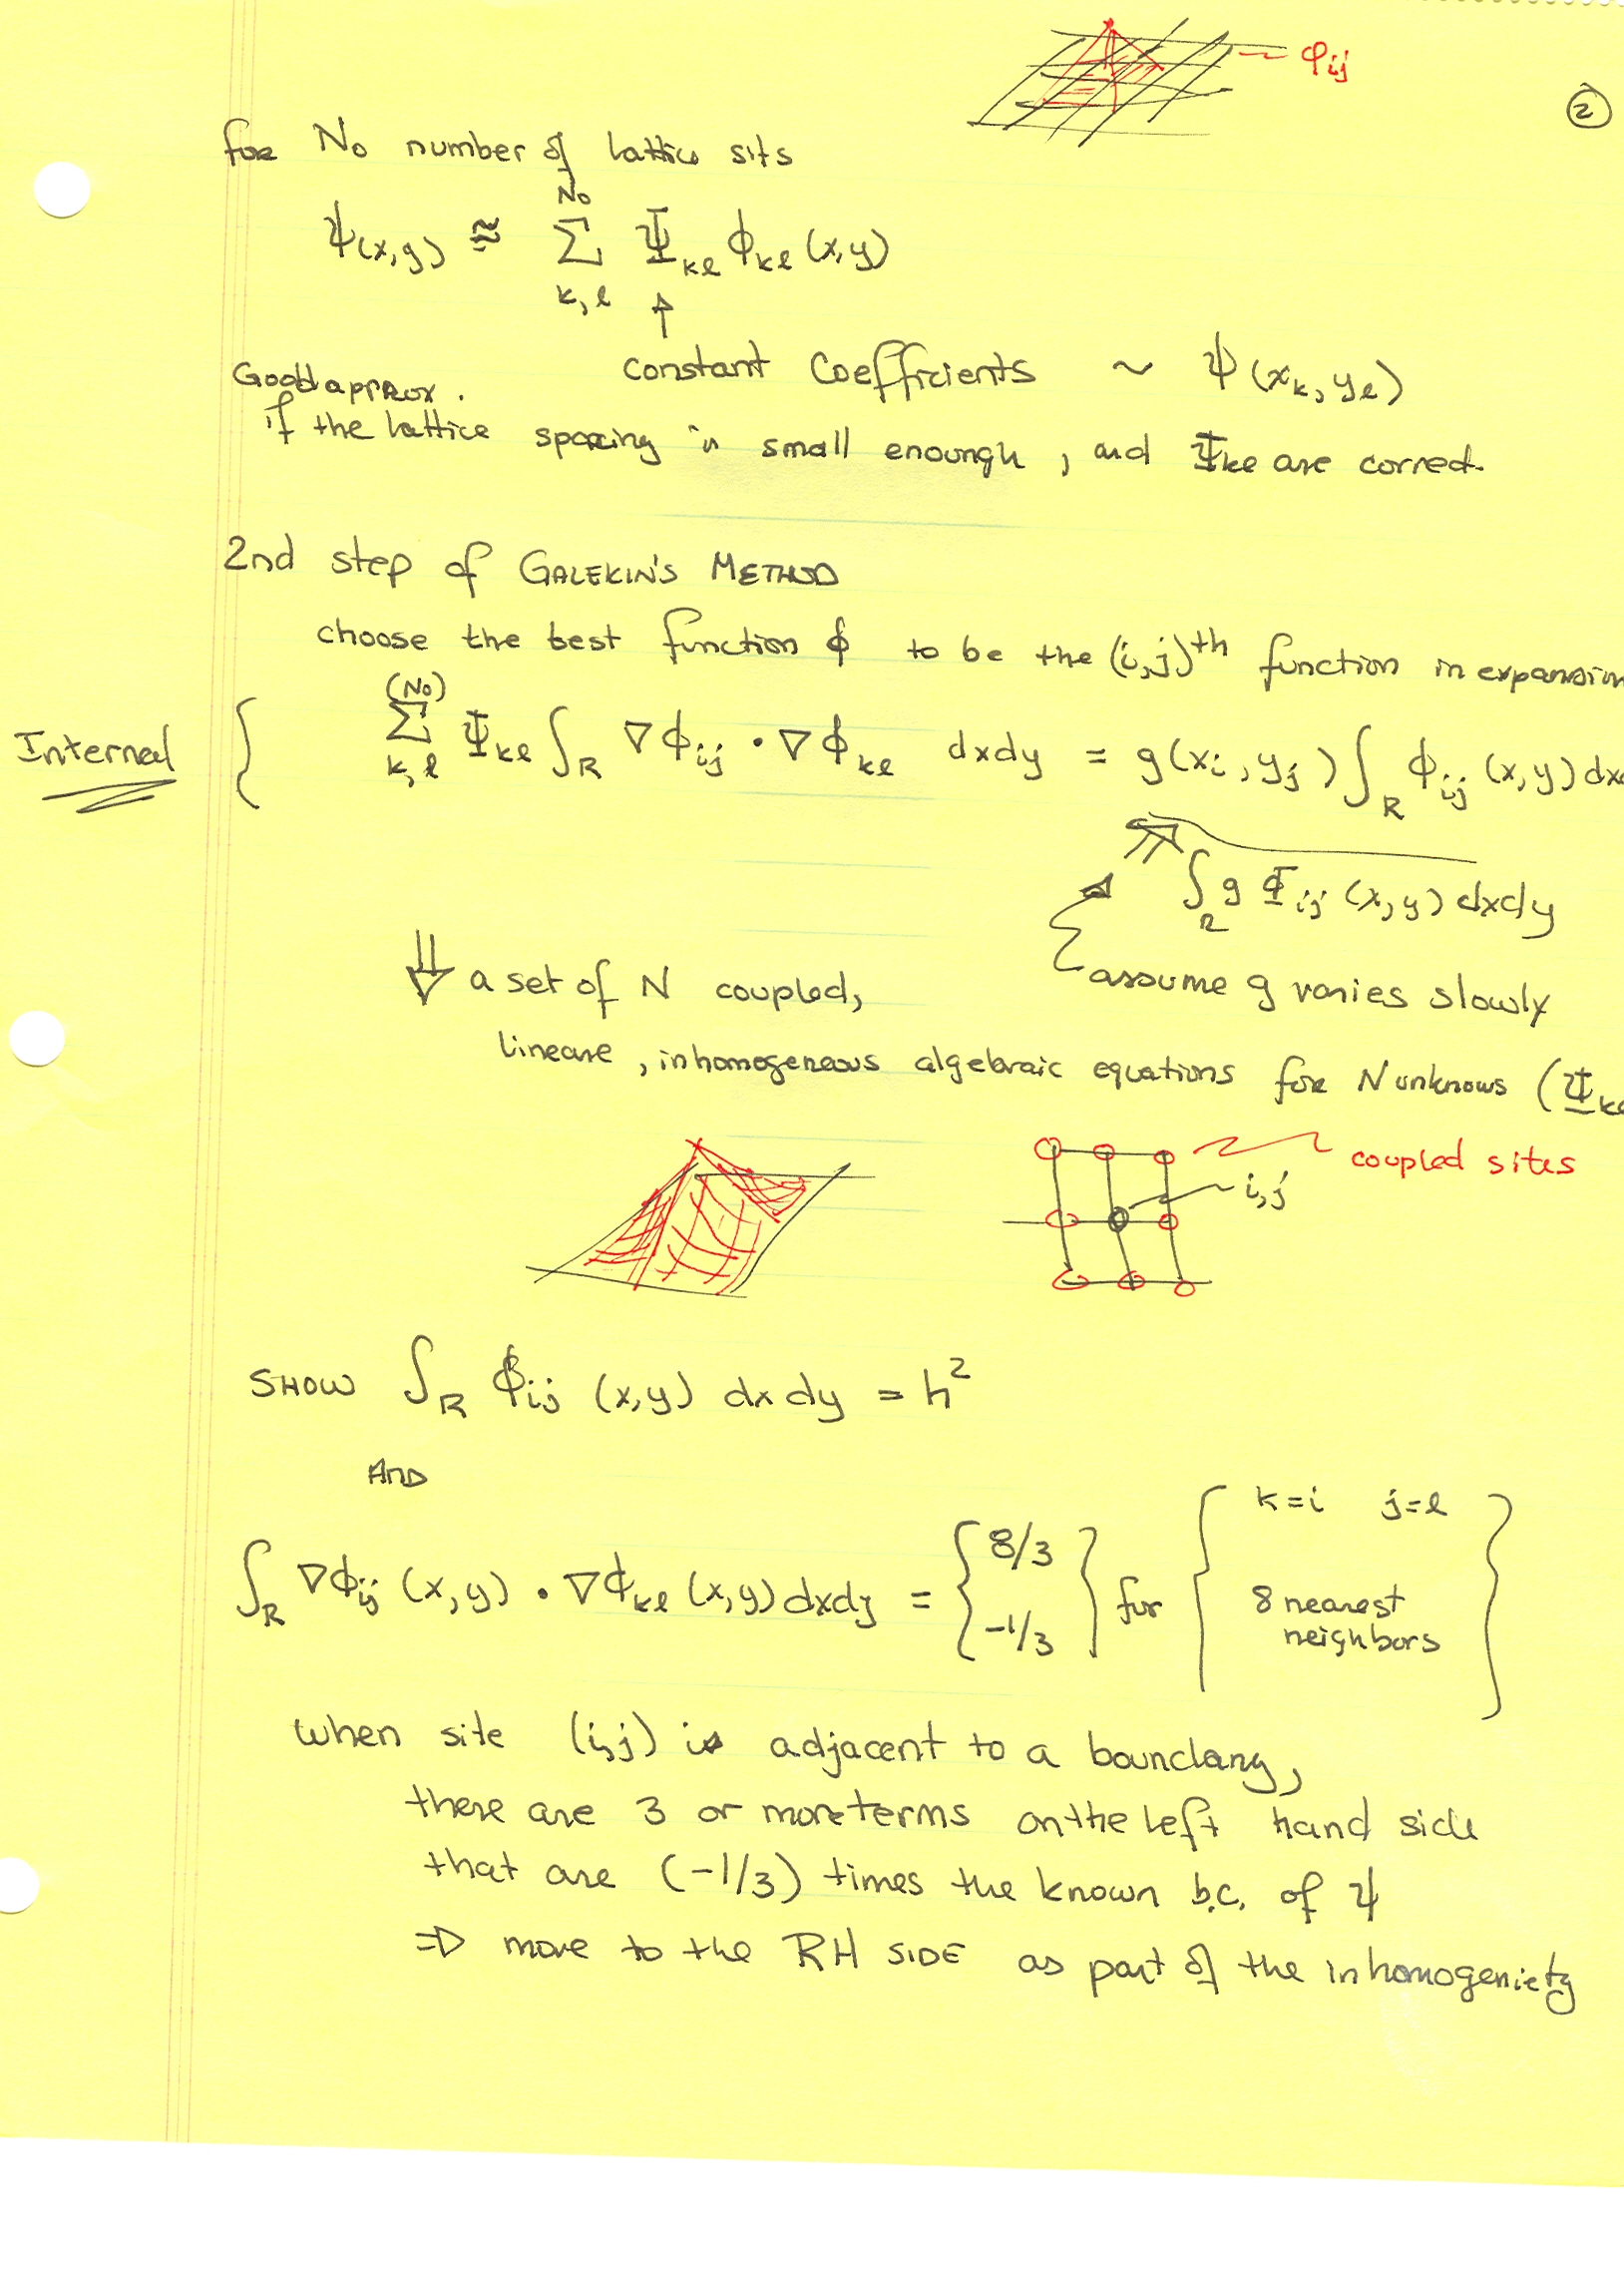 φij
②
for No number of lattice sits
ψ(x,y) ≅ Σ_{k,l}^{No} Ψkl ϕkl (x,y)
↑
constant Coefficients ~ ψ(xk, yl)
Good approx.
if the lattice spacing is small enoungh, and Ψkl are correct.
2nd step of GALEKIN'S METHOD
choose the best function ϕ to be the (i,j)th function in expansion
Internal { Σ_{k,l}^{(No)} Ψkl ∫R ∇ϕij • ∇ϕkl dxdy = g(xi, yj) ∫R ϕij (x,y) dx
∫R g Φij (x,y) dxdy
assume g varies slowly
⇓ a set of N coupled,
lineare, inhomogeneous algebraic equations for N unknows (Ψkl
coupled sites
i,j
SHOW ∫R ϕij (x,y) dxdy = h²
AND
∫R ∇ϕij (x,y) • ∇ϕkl (x,y) dxdy = { 8/3 -1/3 } for { k=i j=l 8 nearest neighbors }
when site (i,j) is adjacent to a boundary,
there are 3 or more terms on the left hand side
that are (-1/3) times the known b.c. of ψ
⇒ move to the RH SIDE as part of the inhomogeniety